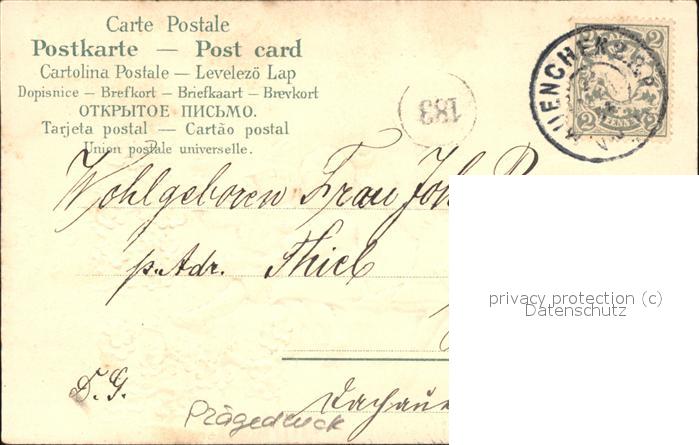 Carte Postale
Postkarte — Post card
Cartolina Postale — Levelező Lap
Dopisnice — Brefkort — Briefkaart — Brevkort
ОТКРЫТОЕ ПИСЬМО.
Tarjeta postal — Cartão postal
Union postale universelle.
183
MUENCHEN 2. B. P.
2 2
2 2
PFENNIG
Wohlgeboren Frau Joh
p. Adr. Thiel
privacy protection (c)
Datenschutz
D. G.
Dachaue
Prägedruck